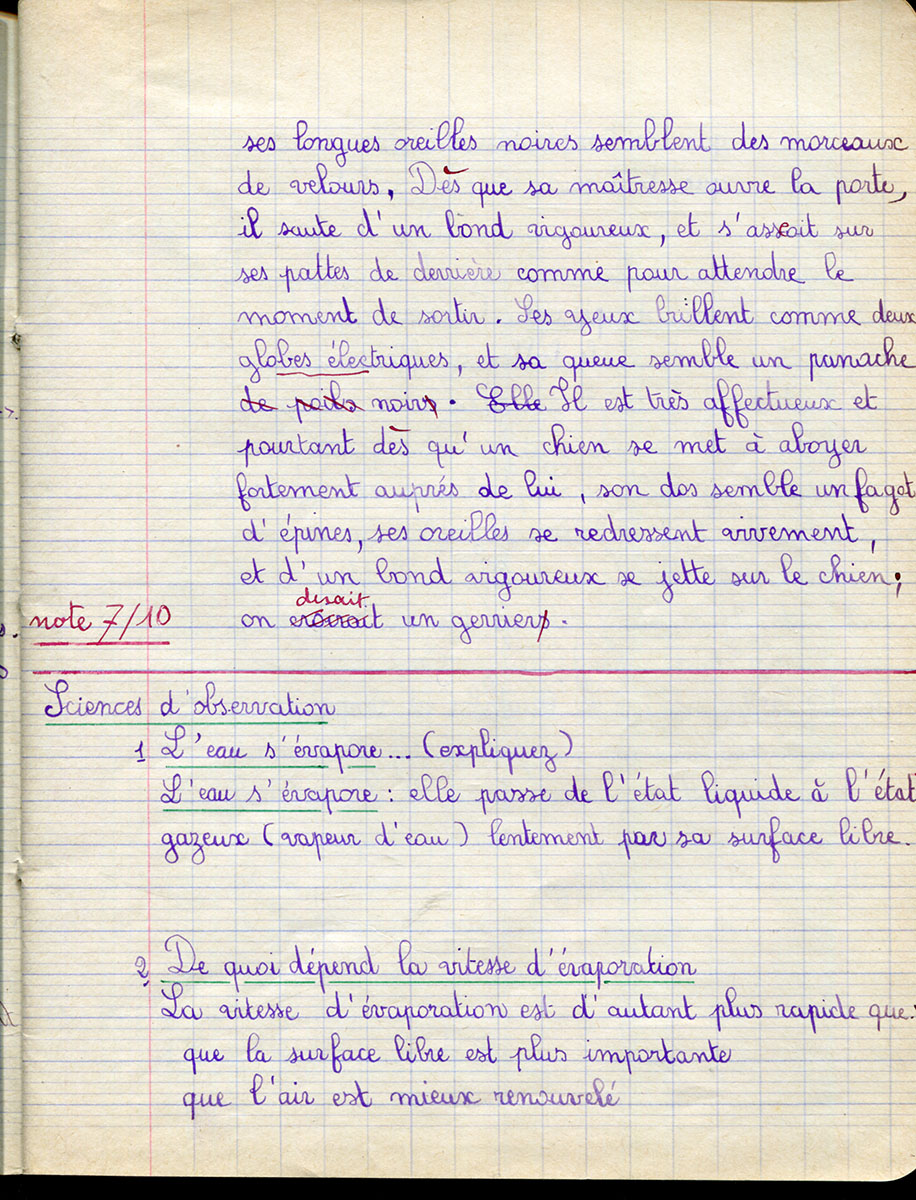 ses longues oreilles noires semblent des morceaux
de velours, Dès que sa maîtresse ouvre la porte,
il saute d'un bond vigoureux, et s'asseoit sur
ses pattes de derrière comme pour attendre le
moment de sortir. Ses yeux brillent comme deux
globes électriques, et sa queue semble un panache
de poils noirs. Elle Il est très affectueux et
pourtant dès qu'un chien se met à aboyer
fortement auprés de lui, son dos semble un fagot
d'épines, ses oreilles se redressent vivement,
et d'un bond vigoureux se jette sur le chien;
disait
note 7/10 on croirait un gerrier.
Sciences d'observation
1 L'eau s'évapore... (expliquez)
L'eau s'évapore : elle passe de l'état liquide à l'état
gazeux (vapeur d'eau) lentement par sa surface libre.
2 De quoi dépend la vitesse d'évaporation
La vitesse d'évaporation est d'autant plus rapide que.
que la surface libre est plus importante
que l'air est mieux renouvelé